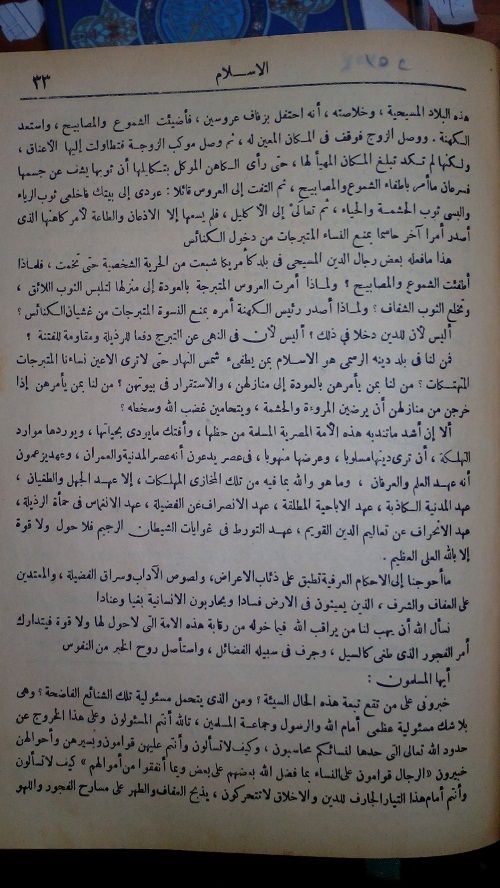 الاسلام ٣٣
هذه البلاد المسيحية ، وخلاصته ، أنه احتفل بزفاف عروسين ، فأضيئت الشموع والمصابيح ، واستعد
الكهنة . ووصل الزوج فوقف فى المكان المعين له ، ثم وصل موكب الزوجة فتطاولت إليها الأعناق ،
ولكنها لم تكد تبلغ المكان المهيأ لها ، حتى رأى الكاهن الموكل بتكليلها أن ثوبها يشف عن جسمها
فسرعان ما أمر باطفاء الشموع والمصابيح ، ثم التفت إلى العروس قائلا : عودى إلى بيتك فاخلعى ثوب الرياء
والبسى ثوب الحشمة والحياء ، ثم تعالى إلى الاكليل ، فلم يسعها إلا الاذعان والطاعة لأمر كاهنها الذى
أصدر أمرا آخر حاسما بمنع النساء المتبرجات من دخول الكنائس
هذا ما فعله بعض رجال الدين المسيحى فى بلد كأمريكا شبعت من الحرية الشخصية حتى تخمت ، فلماذا
أطفئت الشموع والمصابيح ؟ ولماذا أمرت العروس المتبرجة بالعودة إلى منزلها لتلبس الثوب اللائق ،
وتخلع الثوب الشفاف ؟ ولماذا أصدر رئيس الكهنة أمره بمنع النسوة المتبرجات من غشيان الكنائس ؟
أليس لأن للدين دخلا فى ذلك ؟ أليس لأن فى النهى عن التبرج دفعا للرذيلة ومقاومة للفتنة ؟
فمن لنا فى بلد دينه الرسمى هو الاسلام بمن يطفىء شمس النهار حتى لاترى الاعين نساءنا المتبرجات
المتهتكات ؟ من لنا بمن يأمرهن بالعودة إلى منازلهن ، والاستقرار فى بيوتهن ؟ من لنا بمن يأمرهن إذا
خرجن من منازلهن أن يرضين المروءة والحشمة ، ويتحامين غضب الله وسخطه ؟
ألا إن أشد ماتندبه هذه الأمة المصرية المسلمة من حظها ، وأفتك مايردى بحياتها ، ويوردها موارد
التهلكة ، أن ترى دينها مسلوبا ، وعرضها منهوبا ، فى عصر يدعون أنه عصر المدنية والعمران ، وعهد يزعمون
أنه عهد العلم والعرفان ، وما هو والله بما فيه من تلك المخازى المهلكات ، إلا عهد الجهل والطغيان ،
عهد المدنية الكاذبة ، عهد الاباحية المطلقة ، عهد الانصراف عن الفضيلة ، عهد الانغماس فى حمأة الرذيلة ،
عهد الانحراف عن تعاليم الدين القويم ، عهد التورط فى غوايات الشيطان الرجيم فلا حول ولا قوة
إلا بالله العلى العظيم .
ما أحوجنا إلى الاحكام العرفية تطبق على ذئاب الاعراض ، ولصوص الآداب وسراق الفضيلة ، والمعتدين
على العفاف والشرف ، الذين يعيثون فى الارض فسادا ويحاربون الانسانية بغيا وعنادا
نسأل الله أن يهب لنا من يراقب الله فيما خوله من رقابة هذه الامة التى لا حول لها ولا قوة فيتدارك
أمر الفجور الذى طغى كالسيل ، وجرف فى سبيله الفضائل ، واستأصل روح الخير من النفوس
أيها المسلمون :
خبرونى على من تقع تبعة هذه الحال السيئة ؟ ومن الذى يتحمل مسئولية تلك الشنائع الفاضحة ؟ وهى
بلا شك مسئولية عظمى أمام الله والرسول وجماعة المسلمين ، تالله أنتم المسئولون وعلى هذا الخروج عن
حدود الله تعالى التى حدها لنسائكم محاسبون ، وكيف لا تسألون وأنتم عليهن قوامون وبسيرهن وأحوالهن
خبيرون « الرجال قوامون على النساء بما فضل الله بعضهم على بعض وبما أنفقوا من أموالهم » كيف لا تسألون
وأنتم أمام هذا التيار الجارف للدين والاخلاق لا تتحركون ، يذبح العفاف والطهر على مسارح الفجور واللهو